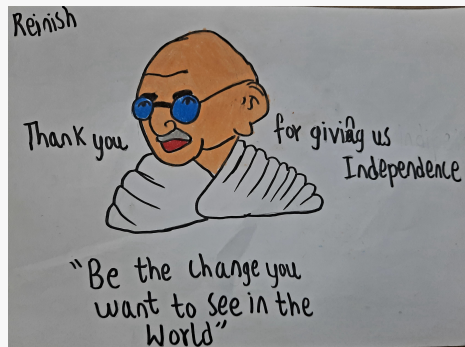 Reinish
Thank you for giving us
Independence
"Be the change you
want to see in the
World"